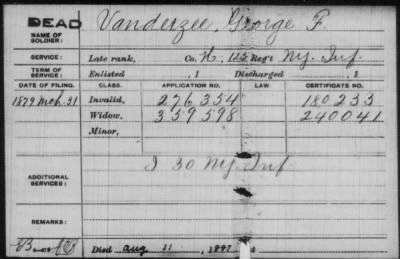 DEAD
NAME OF SOLDIER: Vanderzee, George F.
SERVICE: Late rank, Co. H, 125 Reg't N.Y. Inf.
TERM OF SERVICE: Enlisted , 1 Discharged , 1
DATE OF FILING. CLASS. APPLICATION NO. LAW CERTIFICATE NO.
1879 Mch. 31 Invalid, 276,354 180233
Widow, 359598 240041
Minor,
ADDITIONAL SERVICES: I 30 N.Y. Inf
REMARKS:
Died Aug 11, 1887